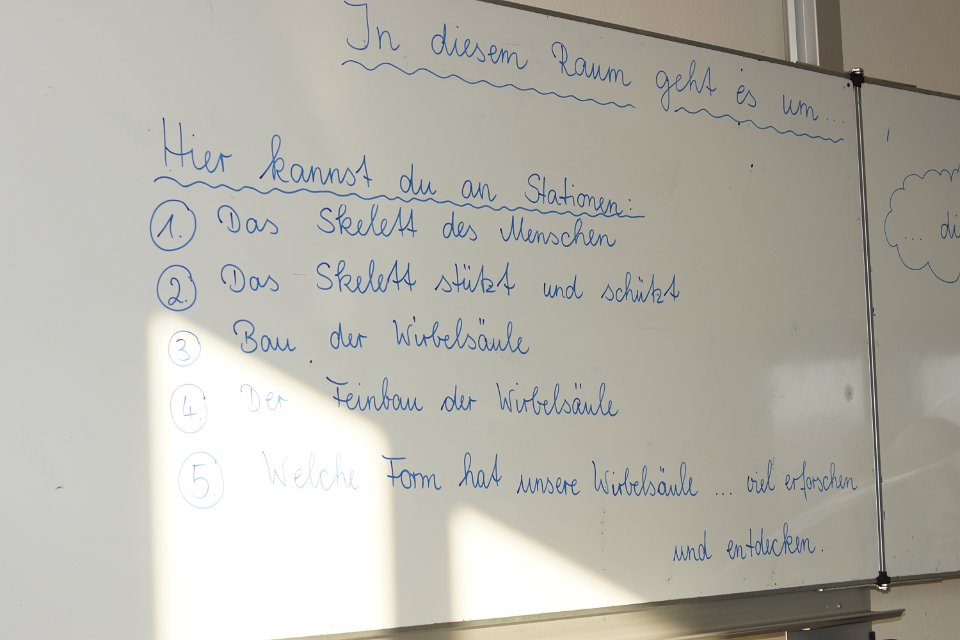 In diesem Raum geht es um...
Hier kannst du an Stationen:
1. Das Skelett des Menschen
2. Das Skelett stützt und schützt
3 Bau der Wirbelsäule
4. Der Feinbau der Wirbelsäule
5 Welche Form hat unsere Wirbelsäule ... viel erforschen
und entdecken.
...